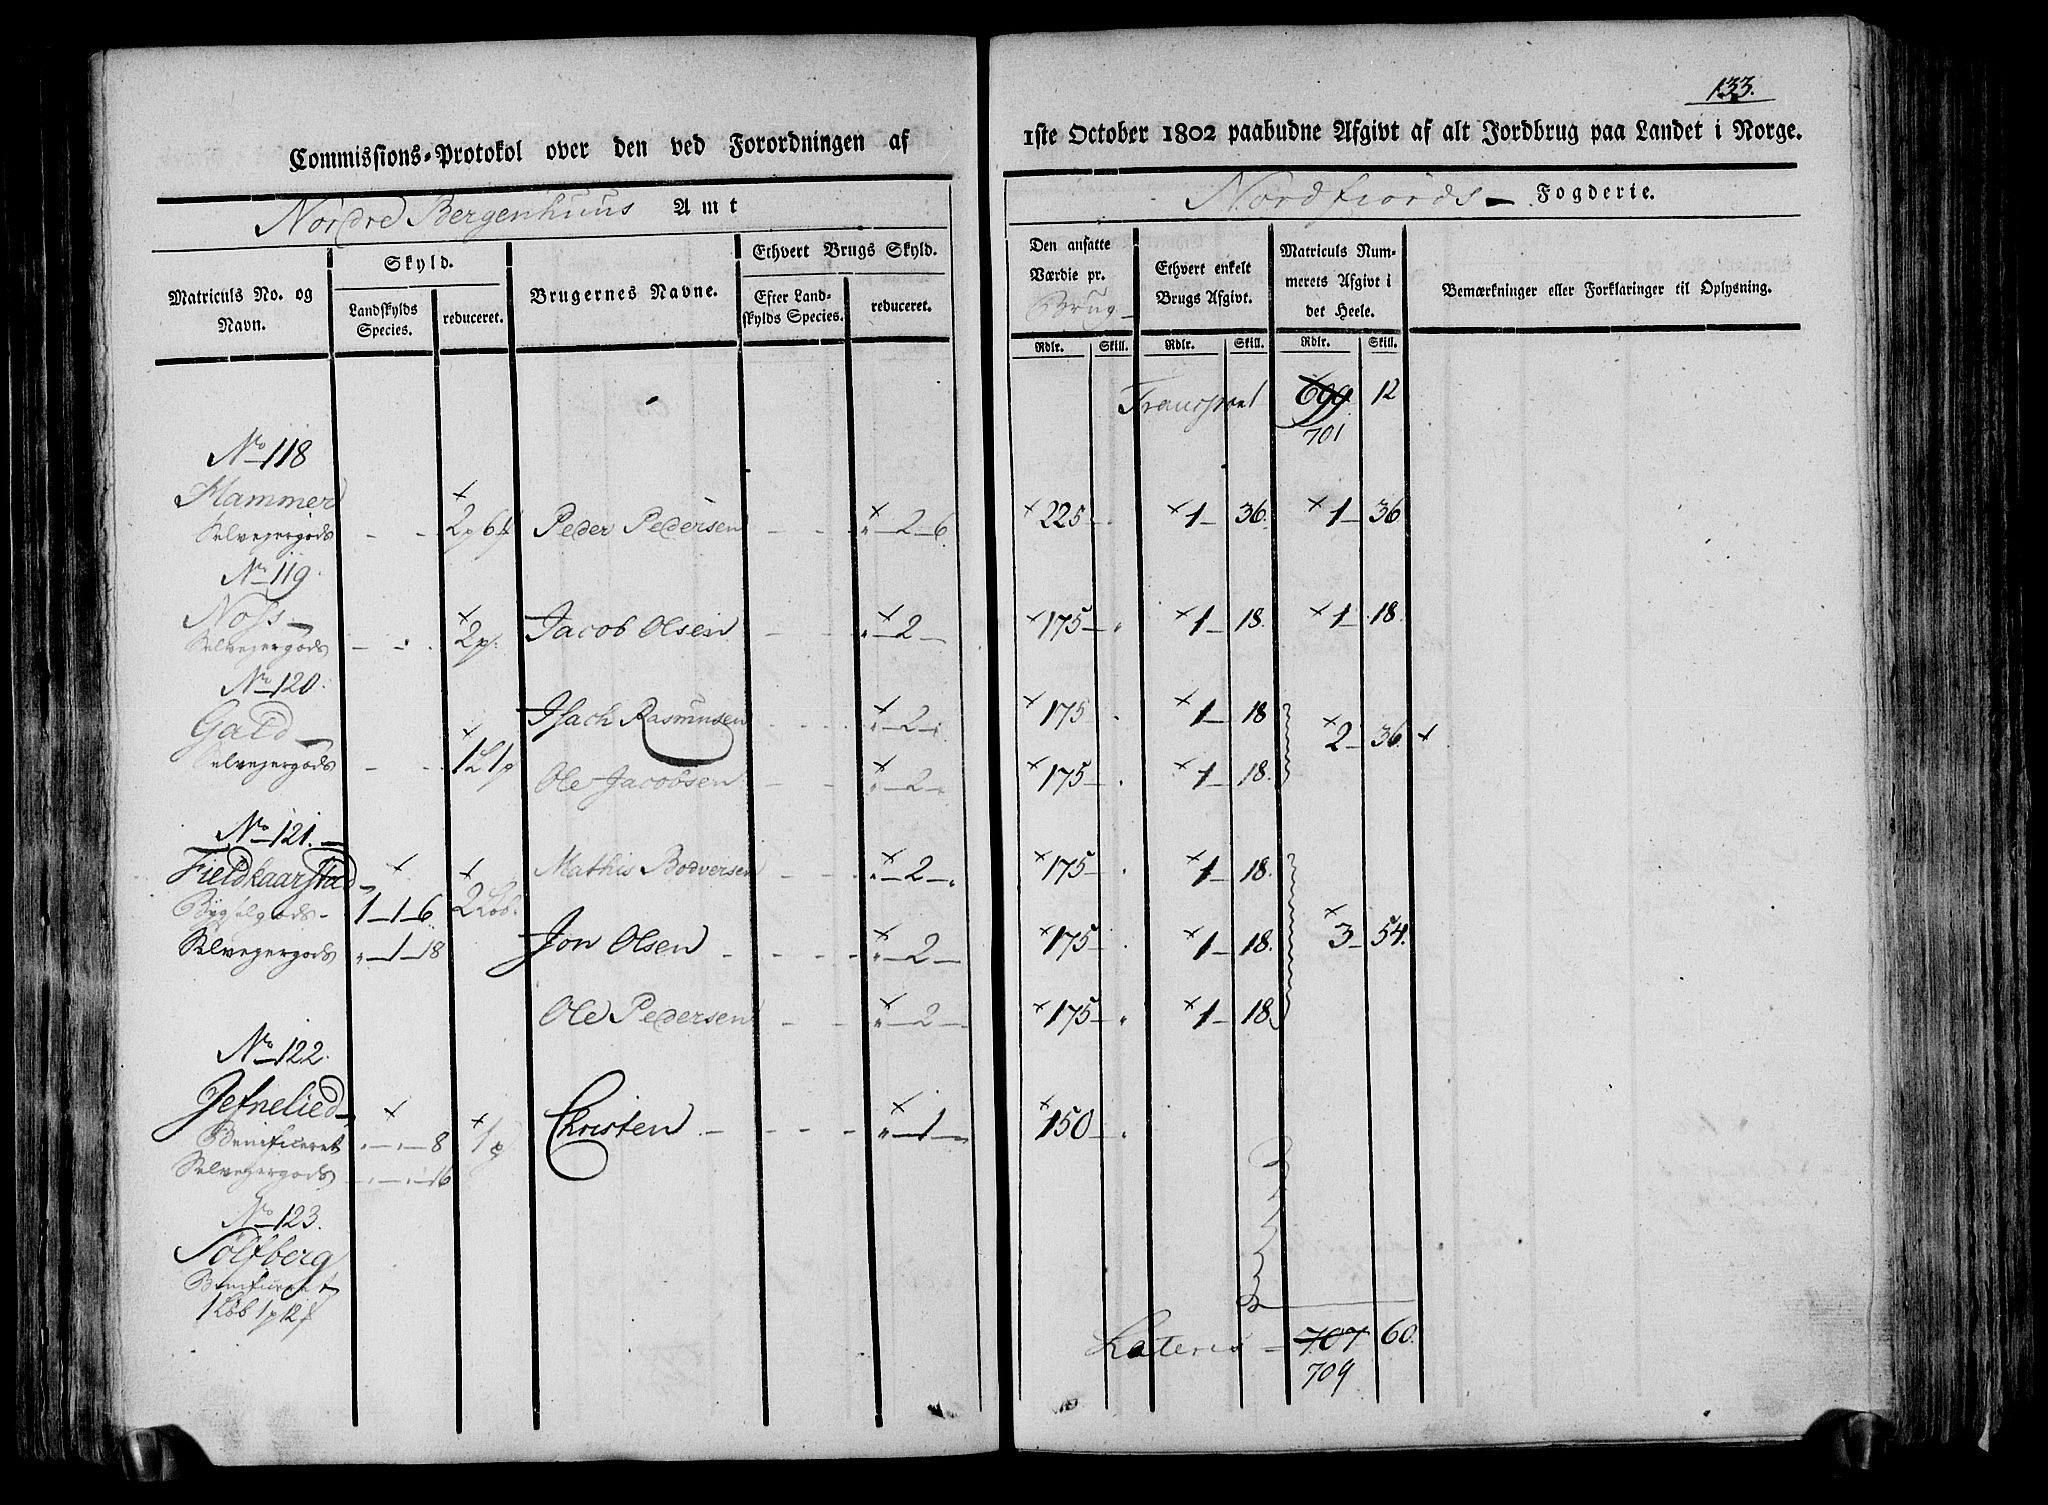 Commissions-Protokol over den ved Forordningen af
Nordre Bergenhuus Amt
Matriculs No. og Navn.
Skyld.
Landskylds Species.
reduceret.
Brugernes Navne.
Ethvert Brugs Skyld.
Efter Landskylds Species.
reduceret.
No 118
Hammer
Selvejergods - - 2p 6f Peder Pedersen - - " - 2 - 6
No 119.
Noss
Selvejergods - - 2p. Jacob Olsen - - " - 2 -
No 120.
Gald
Selvejergods - - 1L 1p Isach Rasmusen - - " - 2 -
Ole Jacobsen - - " - 2 -
No 121.
Fieldkaarstad
Bygselgods - 1 - 1 - 6 2 Løb. Mathis Bodversen - - " - 2 - "
Selvejergods " - 1 - 18 Jon Olsen - - - " - 2 -
Ole Pedersen - - " - 2 -
No 122.
Jefnelied
Benificeret " - " - 8 1p Christen - - - " - 1 -
Selvejergods " - " - 16
No 123.
Solfberg
Benificeret
1 Løb 1p 12f
133.
1ste October 1802 paabudne Afgivt af alt Jordbrug paa Landet i Norge.
Nordfiords Fogderie.
Den ansatte Værdie pr. Brug
Ethvert enkelt Brugs Afgivt.
Matriculs Nummerets Afgivt i det Heele.
Bemærkninger eller Forklaringer til Oplysning.
Rdlr. Skill. Rdlr. Skill. Rdlr. Skill.
Transport 699 12
701
225 - 1 - 36. 1 - 36
175 - " 1 - 18. 1 - 18.
175 " 1 - 18
2 - 36.
175 - " 1 - 18.
175 - " 1 - 18.
175 - " 1 - 18. 3 - 54.
175 - " 1 - 18
150 - "
Lateris - 707 60.
709